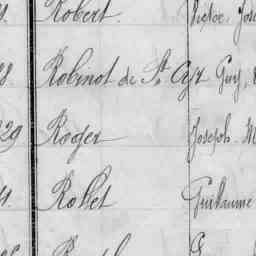 Robert. Victor, José
8. Robinot de St Cyr Guy,
29 Roger Joseph M
Rollet Guillaume